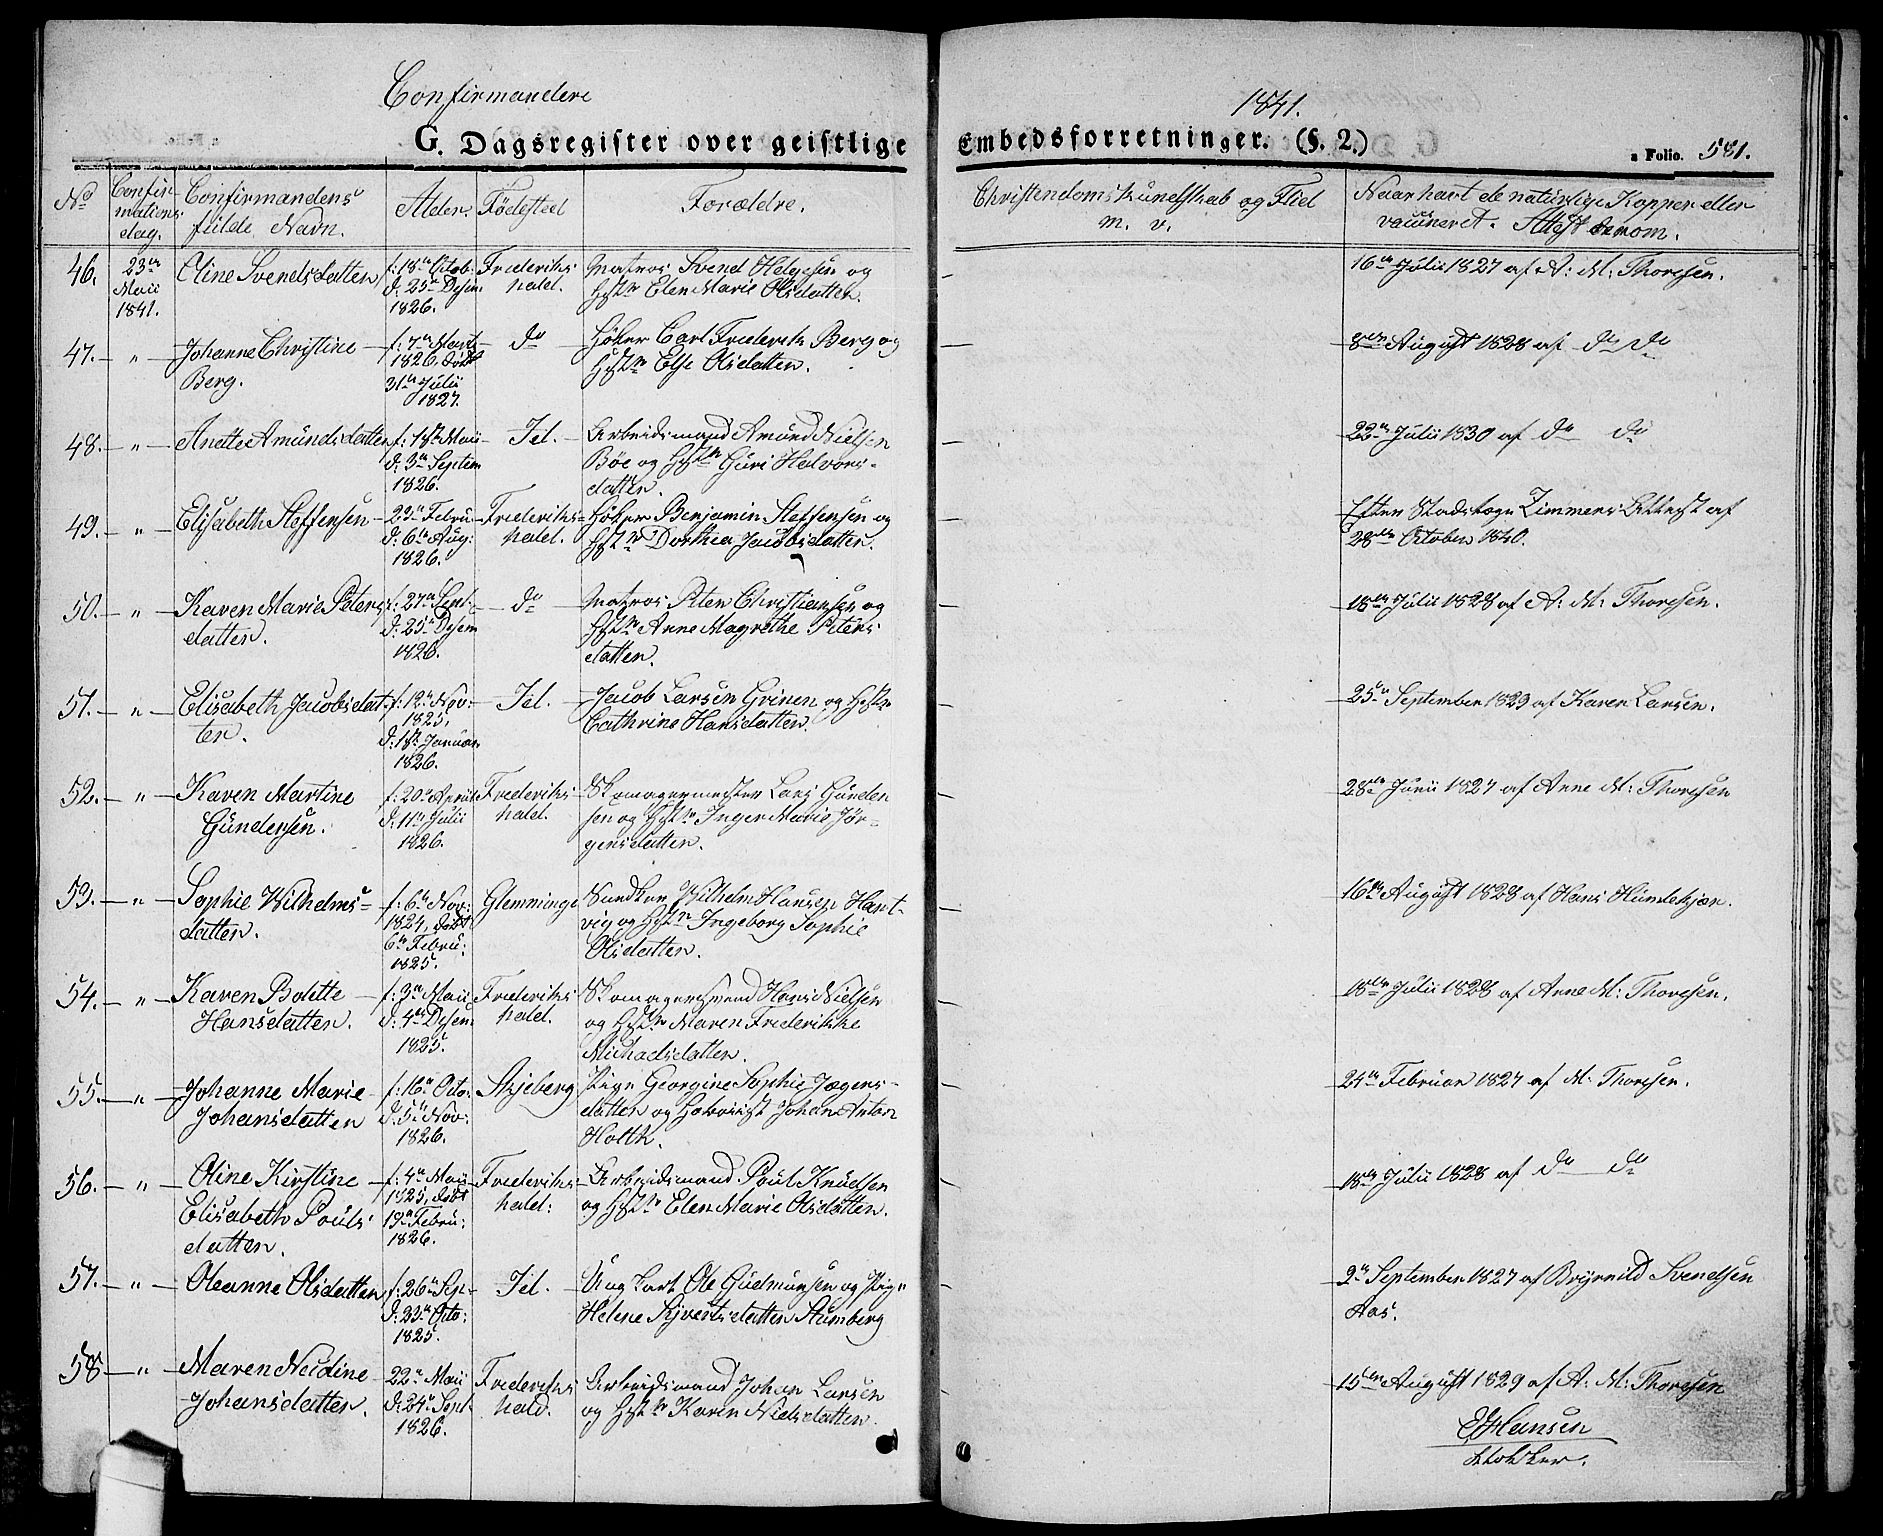 Confirmandere
1841.
G. Dagsregister over geistlige
Embedsforretninger. (§. 2.)
a Folio. 581.
No
Confir-
mations
dag.
Confirmandens
fulde Navn.
Alder.
Fødested
Forældre.
Christendomskundskab og Flid
m. v.
Naar havt de naturlige Kopper eller
vaccineret. Attest derom.
46.
23de
Maii
1841.
Oline Svendsdatter
f: 18de Octob:
d: 25de Desem.
1826.
Frederiks
hald.
Matros Svend Helgesen og
Hstr Elen Marie Olsdatter.
16de Julii 1827 af A: M: Thoresen.
47. — " —
Johanne Christine
Berg.
f: 7de Mart
1826. døbt
31te Julii
1827.
do
Høker Carl Frederik Berg og
Hstr Else Olsdatter.
8de August 1828 af do do
48. — " —
Anette Amundsdatter
f: 18de Maii
d: 3de Septem
1826.
Jd.
Arbeidsmand Amund Nielsen
Böe og Hstr Guri Halvors-
datter.
22de Julii 1830 af do do
49. — " —
Elisabeth Steffensen
22de Febru
d: 6te Aug:
1826.
Frederiks-
hald.
Høker Benjamin Steffensen og
Hstr Dorthea Jacobsdatter.
Efter Stadslæge Zimmers Attest af
28de October 1840.
50. — " —
Karen Marie Peters
datter.
f: 27de Sept.
d: 25de Desem
1826.
do
Matros Peter Christiansen og
Hstr Anne Magrethe Peters
datter.
18de Julii 1828 af A: M: Thoresen.
51. — " —
Elisabeth Jacobsdat
ter.
f: 12te Nov:
1825,
d: 18de Januar
1826.
Jd.
Jacob Larsen Grinen og Hstr
Cathrine Hansdatter.
25de September 1829 af Karen Larsen.
52. — " —
Karen Martine
Gundersen.
f: 20de April
d: 11te Julii
1826.
Frederiks
hald.
Skomagermester Lars Gunder
sen og Hstr Inger Marie Jör-
gensdatter.
28de Junii 1827 af Anne M: Thoresen
53. — " —
Sophie Wilhelms-
datter.
f: 6te Nov:
1824, døbt
6te Febru:
1825.
Glemminge
Snedker Wilhelm Hansen Hart-
vig og Hstr Ingeborg Sophie
Olsdatter.
16de August 1828 af Hans Humlekjær.
54. — " —
Karen Bolette
Hansdatter.
f: 3de Maii
d: 4de Desem.
1825.
Frederiks
hald.
Skomagersvend Hans Nielsen
og Hstr Maren Frederikke
Michaelsdatter.
18de Julii 1828 af Anne M: Thoresen.
55. — " —
Johanne Marie
Johansdatter
f: 16de Octo:
d: 5te Nov:
1826.
Skjeberg
Pige Georgine Sophie Jægers-
datter og Johan Anton
Holth.
24de Februar 1827 af M: Thoresen.
56. — " —
Oline Kirstine
Elisabeth Pouls
datter.
f: 4de Maii
1825, døbt
19de Febru:
1826.
Frederiks-
hald:
Arbeidsmand Poul Knudsen
og Hstr Elen Marie Olsdatter.
18de Julii 1828 af do do
57. — " —
Oleanne Olsdatter
f: 26de Sep-
d: 23de Octo:
1825.
Jd.
Ung Karl Ole Gudmunsen og Pige
Helene Syvertsdatter Stumberg
2de September 1827 af Brynild Svendsen
Aas.
58 — " —
Maren Neidine
Johansdatter.
22de Maii
d: 24de Sept.
1826.
Frederiks
hald.
Arbeidsmand Johan Larsen
og Hstr Karen Nielsdatter.
15de August 1829 af A: M: Thoresen
Hansen
Klokker.